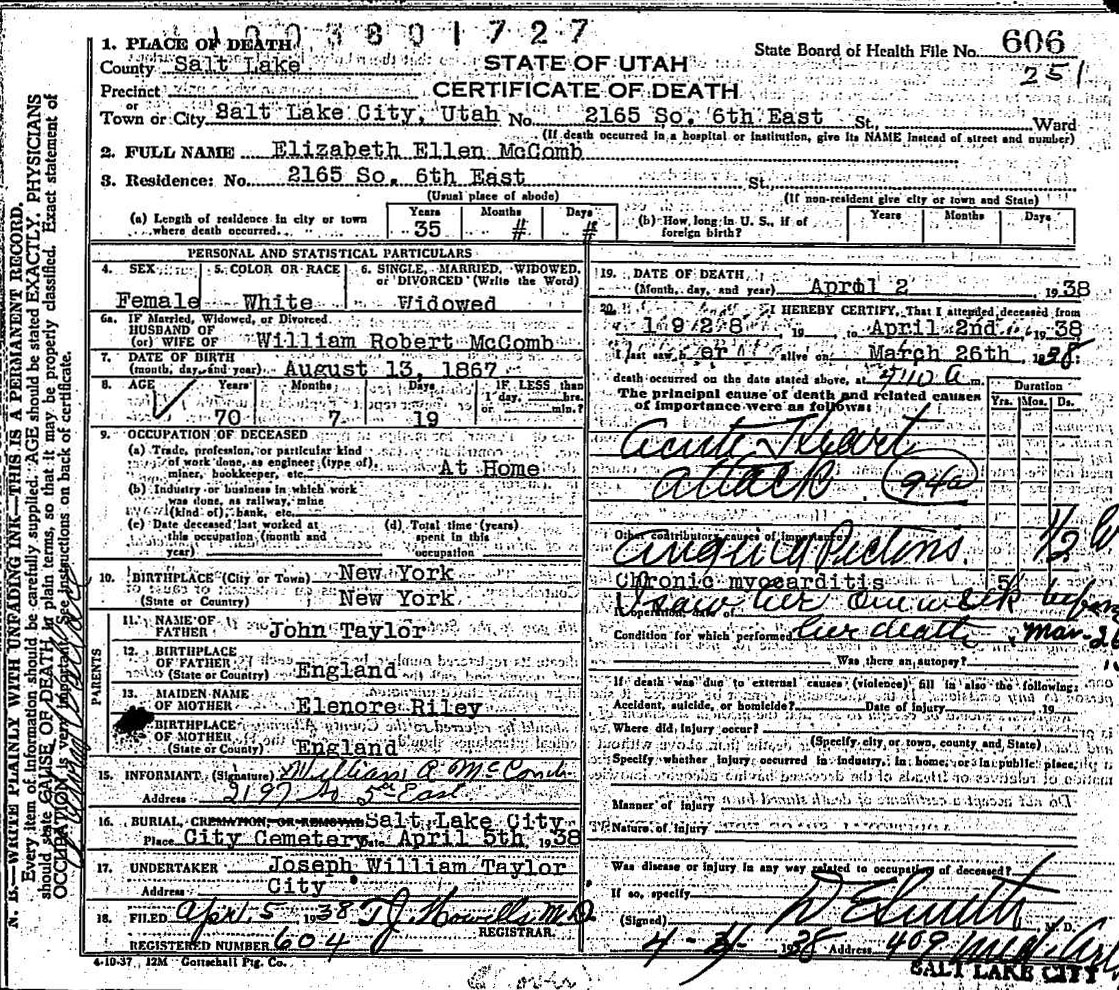 1003801727
1. PLACE OF DEATH
County Salt Lake
STATE OF UTAH
State Board of Health File No. 606
251
Precinct
CERTIFICATE OF DEATH
or
Town or City Salt Lake City, Utah No. 2165 So. 6th East St., Ward
(If death occurred in a hospital or institution, give its NAME instead of street and number)
2. FULL NAME Elizabeth Ellen McComb
3. Residence: No. 2165 So. 6th East St.
(Usual place of abode)
(If non-resident give city or town and State)
(a) Length of residence in city or town where death occurred. Years 35 Months # Days #
(b) How long in U. S., if of foreign birth? Years Months Days
PERSONAL AND STATISTICAL PARTICULARS
4. SEX Female
5. COLOR OR RACE White
6. SINGLE, MARRIED, WIDOWED, or DIVORCED (Write the Word) Widowed
6a. IF Married, Widowed, or Divorced
HUSBAND OF
(or) WIFE OF William Robert McComb
7. DATE OF BIRTH
(month, day and year) August 13, 1867
8. AGE Years 70 Months 7 Days 19 IF LESS than 1 day, hrs. or min.?
9. OCCUPATION OF DECEASED
(a) Trade, profession, or particular kind
of work done, as engineer (type of),
miner, bookkeeper, etc. At Home
(b) Industry or business in which work
was done, as railway, mine
(kind of), bank, etc.
(c) Date deceased last worked at
this occupation (month and
year)
(d) Total time (years)
spent in this
occupation
10. BIRTHPLACE (City or Town) New York
(State or Country) New York
PARENTS
11. NAME OF
FATHER John Taylor
12. BIRTHPLACE
OF FATHER
(State or Country) England
13. MAIDEN NAME
OF MOTHER Elenore Riley
BIRTHPLACE
OF MOTHER
(State or County) England
15. INFORMANT (Signature) William R McComb
Address 2197 So 5th East
16. BURIAL, CREMATION, OR REMOVAL Salt Lake City
Place City Cemetery Date April 5th 1938
17. UNDERTAKER Joseph William Taylor
Address City
18. FILED Apr. 5 1938 T J Howells M.D
REGISTRAR.
REGISTERED NUMBER 604
4-10-37 12M Gottschall Ptg. Co.
19. DATE OF DEATH
(Month, day, and year) April 2 1938
20. I HEREBY CERTIFY, That I attended deceased from
1928 19 to April 2nd 1938
I last saw her alive on March 26th, 1938
death occurred on the date stated above, at 7:10 a m.
The principal cause of death and related causes
of importance were as follows:
Duration
Yrs. Mos. Ds.
Acute Heart
attack 94a
Other contributory causes of importance:
Angina Pectoris 1/2
Chronic myocarditis 5
I saw her one week before
her death Mar-26
Condition for which performed
Was there an autopsy?
If death was due to external causes (violence) fill in also the following:
Accident, suicide, or homicide? Date of injury 19
Where did injury occur?
(Specify city or town, county and State)
Specify whether injury occurred in industry, in home, or in public place.
Manner of injury
Nature of injury
Was disease or injury in any way related to occupation of deceased?
If so, specify
(Signed) D E Smith M. D.
1938 Address 409 Med. Arts
SALT LAKE CITY
N. B.—WRITE PLAINLY WITH UNFADING INK—THIS IS A PERMANENT RECORD.
Every item of information should be carefully supplied. AGE should be stated EXACTLY. PHYSICIANS
should state CAUSE OF DEATH in plain terms, so that it may be properly classified. Exact statement of
OCCUPATION is very important. See instructions on back of certificate.